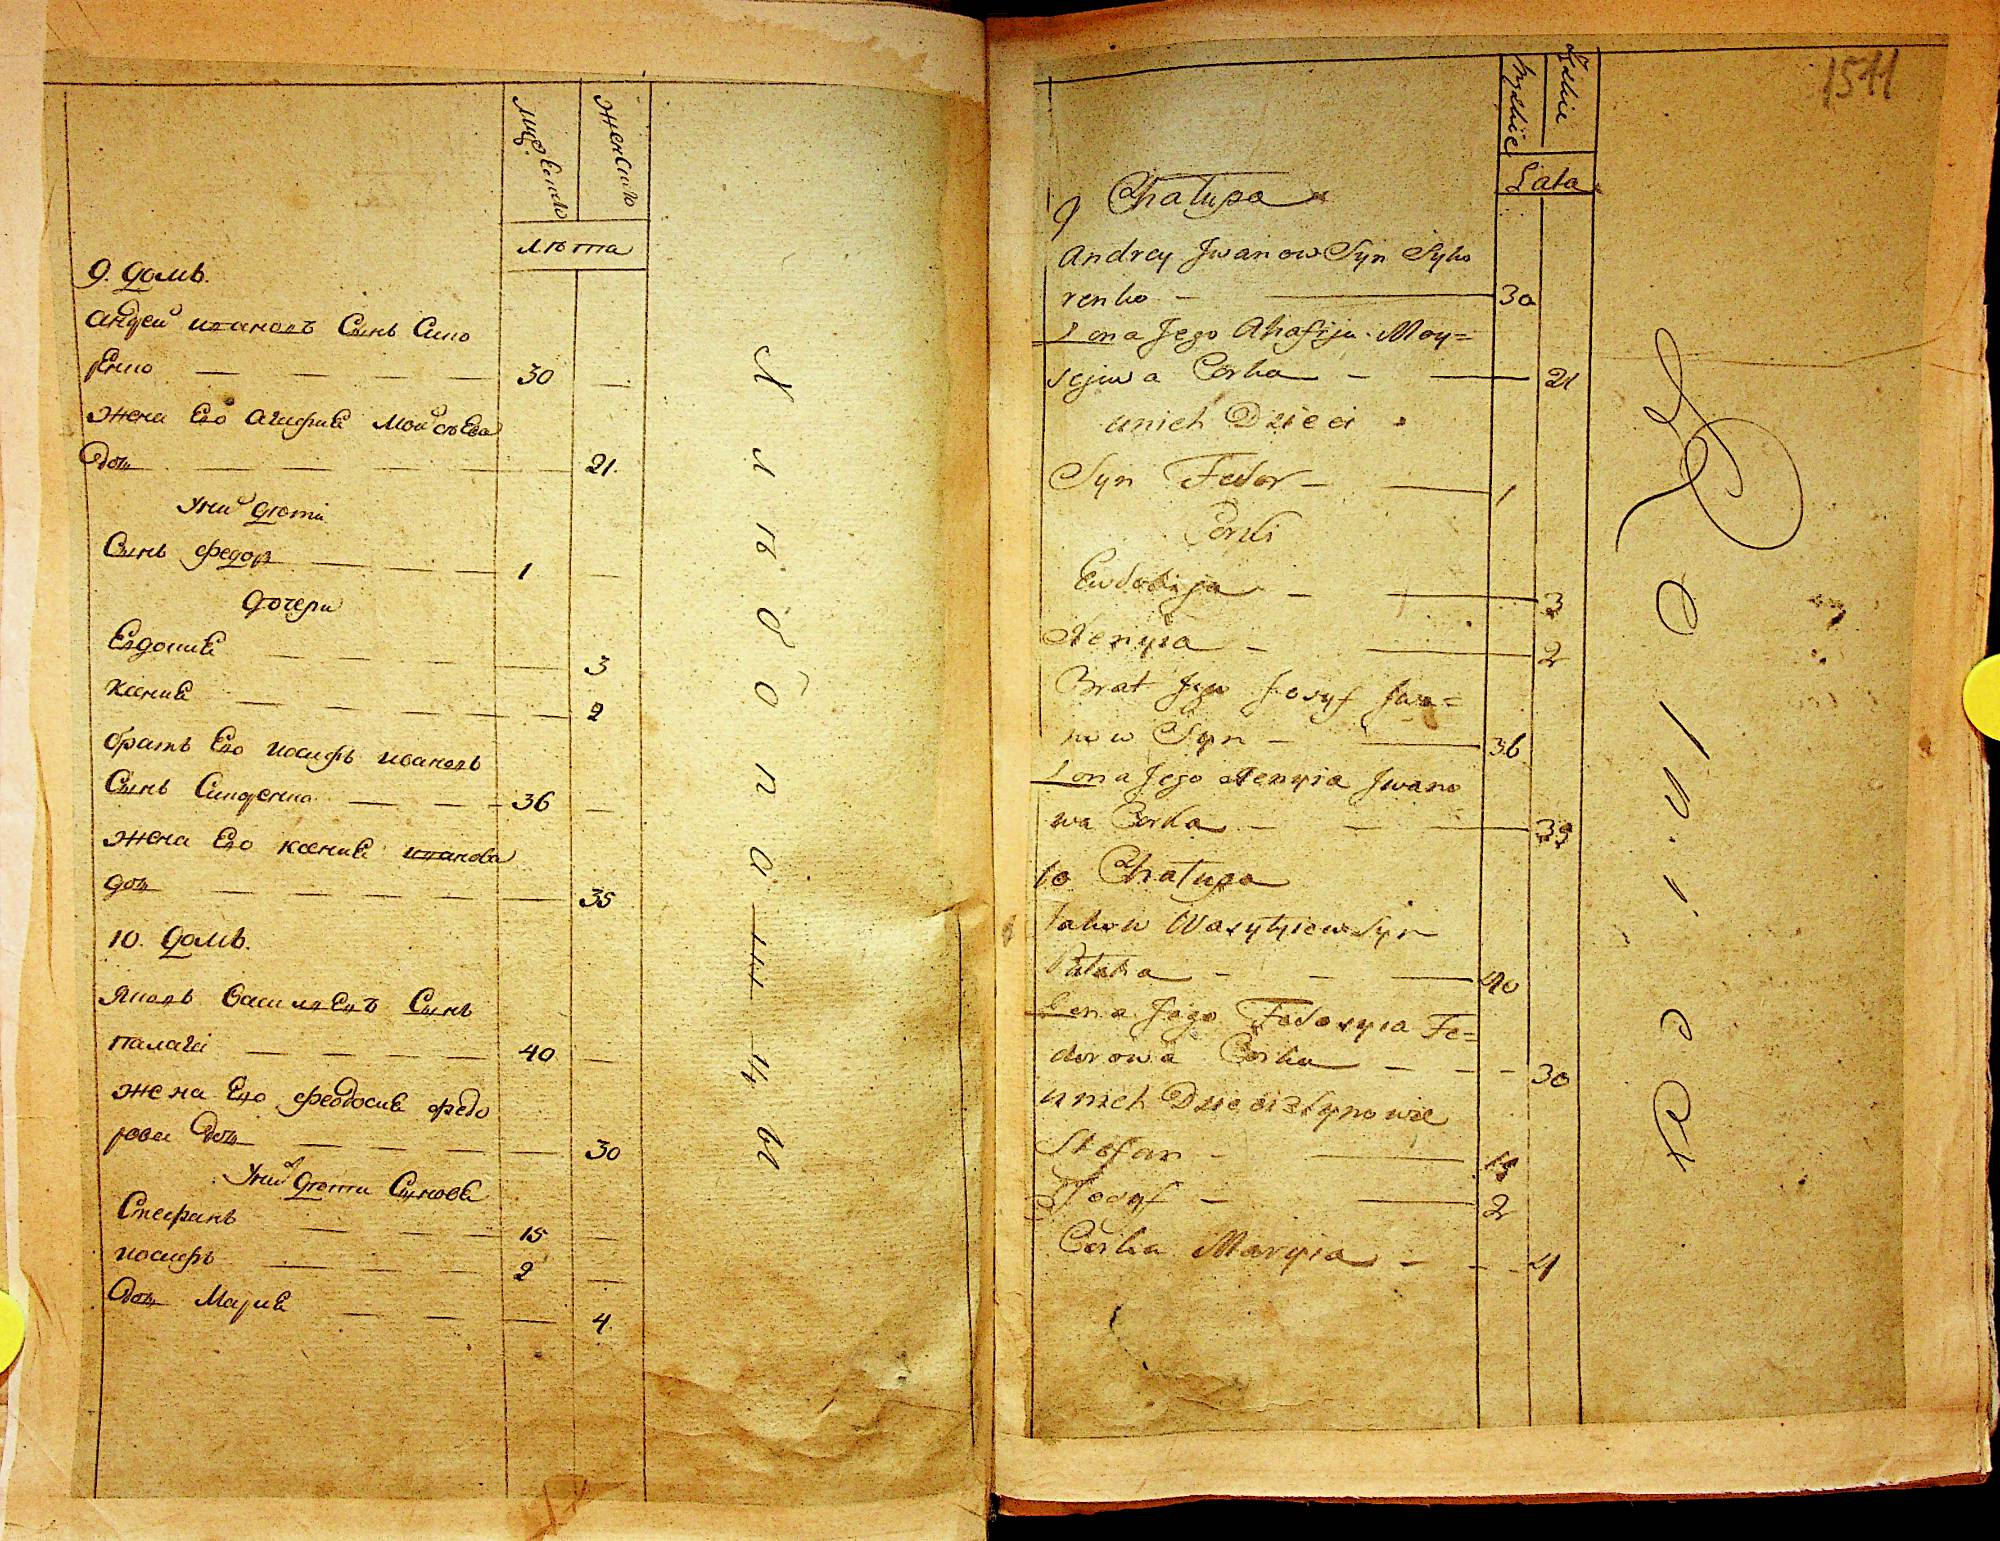 мужеско
женско
лѣта
9. домъ.
андрей ивановъ Сынъ Сико
ренко — — — — 30 —
жена Его агафия Мойсѣева
дощ — — — — 21.
у них дѣти
Сынъ федор — — — 1 —
дочери
Евдокия — — — — 3
ксения — — — — 2
братъ Его иосифъ ивановъ
Сынъ Сикоренко — — — 36 —
жена Его ксения иванова
дощ — — — — 35
10. домъ.
яковъ василиевъ Сынъ
палага — — — — 40 —
жена Его феодосия федо
рова дощ — — — — 30
у них дѣти Сынове
Стефанъ — — — 15 —
иосифъ — — — 2 —
дощ Мария — — — 4.
Хлѣбопашци
1511
Męzkie
Żeńskie
Lata
9 Chałupa
Andrey Jwanow Syn Syko
renko — — 30
Żona Jego Ahafija Moy=
sejwa Corka — — 21
u nich Dzieci
Syn Fedor — — 1
Corki
Ewdokija — — 3
Xenyia — — 2
Brat Jego Josyf Jwa=
now Syn — — 36
Żona Jego Xenyia Jwano
wa Corka — — — 35
10 Chałupa
Jakow Wasylyiew Syn
Palaha — — — 40
Żona Jego Fedosyia Fe=
dorowa Corka — — — 30
u nich Dzieci Synowie
Stefan — — 15
Josyf — — 2
Corka Maryia — — — 4
Rolnicy